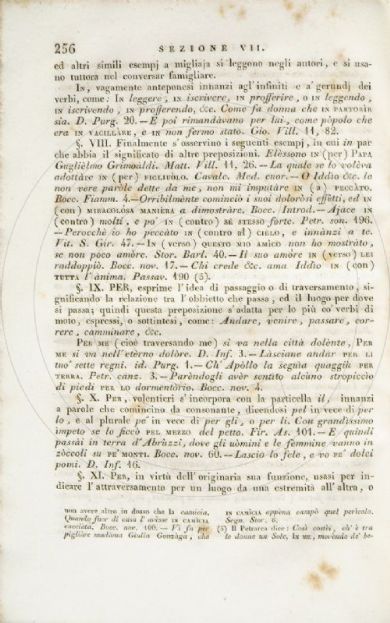 256 SEZIONE VII.
ed altri simili esempj a migliaja si leggono negli autori, e si usa-
no tuttora nel conversar famigliare.
In, vagamente anteponesi innanzi agl'infiniti e a' gerundj dei
verbi, come: In leggere, in iscrivere, in profferire, o in leggendo,
in iscrivendo, in profferendo, &c. Come fa donna che in partorir
sia. D. Purg. 20.—E poi rimandàvano per lui, come pòpolo che
era in vacillare, e in non fermo stato. Gio. Vill. 11, 82.
§. VIII. Finalmente s'osservino i seguenti esempj, in cui in par
che abbia il significato di altre preposizioni. Elèssono in (per) Papa
Guglièlmo Grimoaldi. Matt. Vill. 11, 26.—La quale se lo volèva
adottàre in (per) figliuòlo. Cavalc. Med. cuor.—O Iddio &c. la
non vere paròle dette da me, non mi imputàre in (a) peccàto.
Bocc. Fiamm. 4.—Orribilmente comìnciò i suoi dolorósi effètti, ed in
(con) miracolosa manièra a dimostràre. Bocc. Introd.—Ajace in
(contro) molti, e po' in (contro) sè stesso forte. Petr. son. 196.
—Perocchè io ho peccàto in (contro al) cielo, e innànzi a te.
Vit. S. Gir. 47.—In (verso) questo mio amico non ho mostràto,
se non poco amòre. Stor. Barl. 40.—Il suo amòre in (verso) lei
raddoppiò. Bocc. nov. 17.—Chi crede &c. ama Iddio in (con)
tutta l'ànima. Passav. 190 (5).
§. IX. Per, esprime l'idea di passaggio o di traversamento, si-
gnificando la relazione tra l'obbietto che passa, ed il luogo per dove
si passa; quindi questa preposizione s'adatta per lo più co' verbi di
moto, espressi, o sottintesi, come: Andare, venire, passare, cor-
rere, camminare, &c.
Per me (cioè traversando me) si va nella città dolènte, Per
me si va nell'etèrno dolòre. D. Inf. 3.—Làsciane andar per li
tuo' sette regni. id. Purg. 1.—Ch' Apòllo la seguia quaggiù per
terra. Petr. canz. 3.—Parèndogli avèr sentìto alcùno stropìccio
di piedi per lo dormentòrio. Bocc. nov. 4.
§. X. Per, volentieri s'incorpora con la particella il, innanzi
a parole che comincino da consonante, divendosi pel in vece di per
lo, e al plurale pe' in vece di per gli, o per li. Con grandìssimo
impeto se lo ficcò pel mezzo del petto. Fir. As. 101.—E quindi
passài in terra d'Abrùzzi, dove gli uòmini e le femmine vanno in
zòccoli su pe' monti. Bocc. nov. 60.—Lascio lo fele, e vo pe' dolci
pomi. D. Inf. 16.
§. XI. Per, in virtù dell'originaria sua funzione, usasi per in-
dicare l'attraversamento per un luogo da una estremità all'altra, o
non avere altro in dosso che la camicia.
Quando fuor di casa l'avisse in camicia
cacciata. Bocc. nov. 100.—Vi fu per
pigliare madonna Gedlia Gonzàga, che
in camicia appena campò quel perìcolo.
Segn. Stor. 6.
(5) Il Petrarca dice: Così costèi, ch'è tra
le donne un Sole, In me, movèndo de' be-